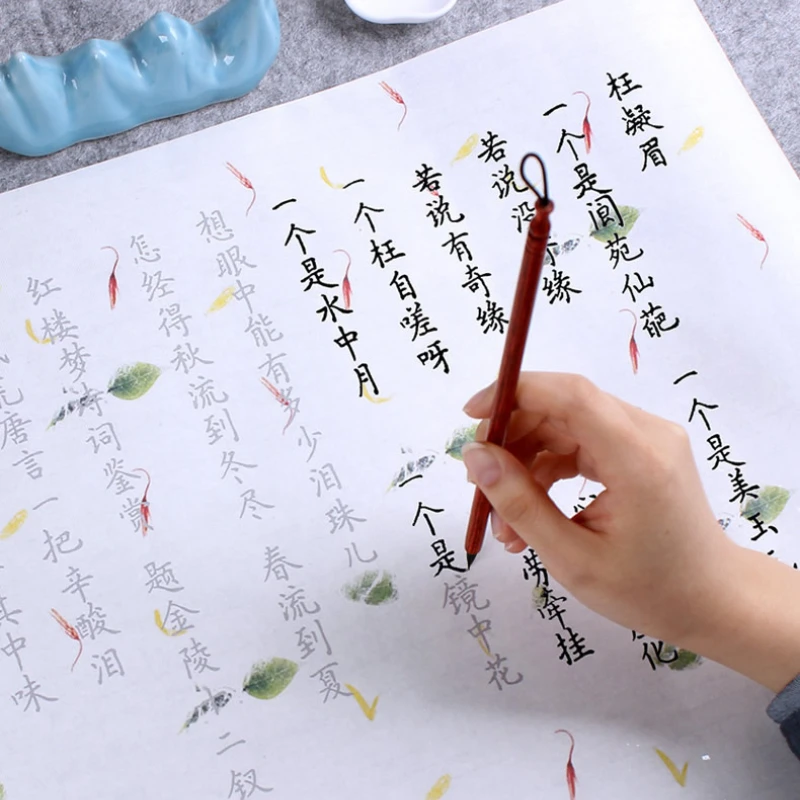 枉凝眉
一个是阆苑仙葩 一个是美玉
若说没 缘
若说有奇缘 化
一个枉自嗟呀 劳牵挂
一个是水中月 一个是镜中花
想眼中能有多少泪珠儿
怎经得秋流到冬尽 春流到夏
红楼梦诗词鉴赏 题金陵十二钗
荒唐言 一把辛酸泪
其中味